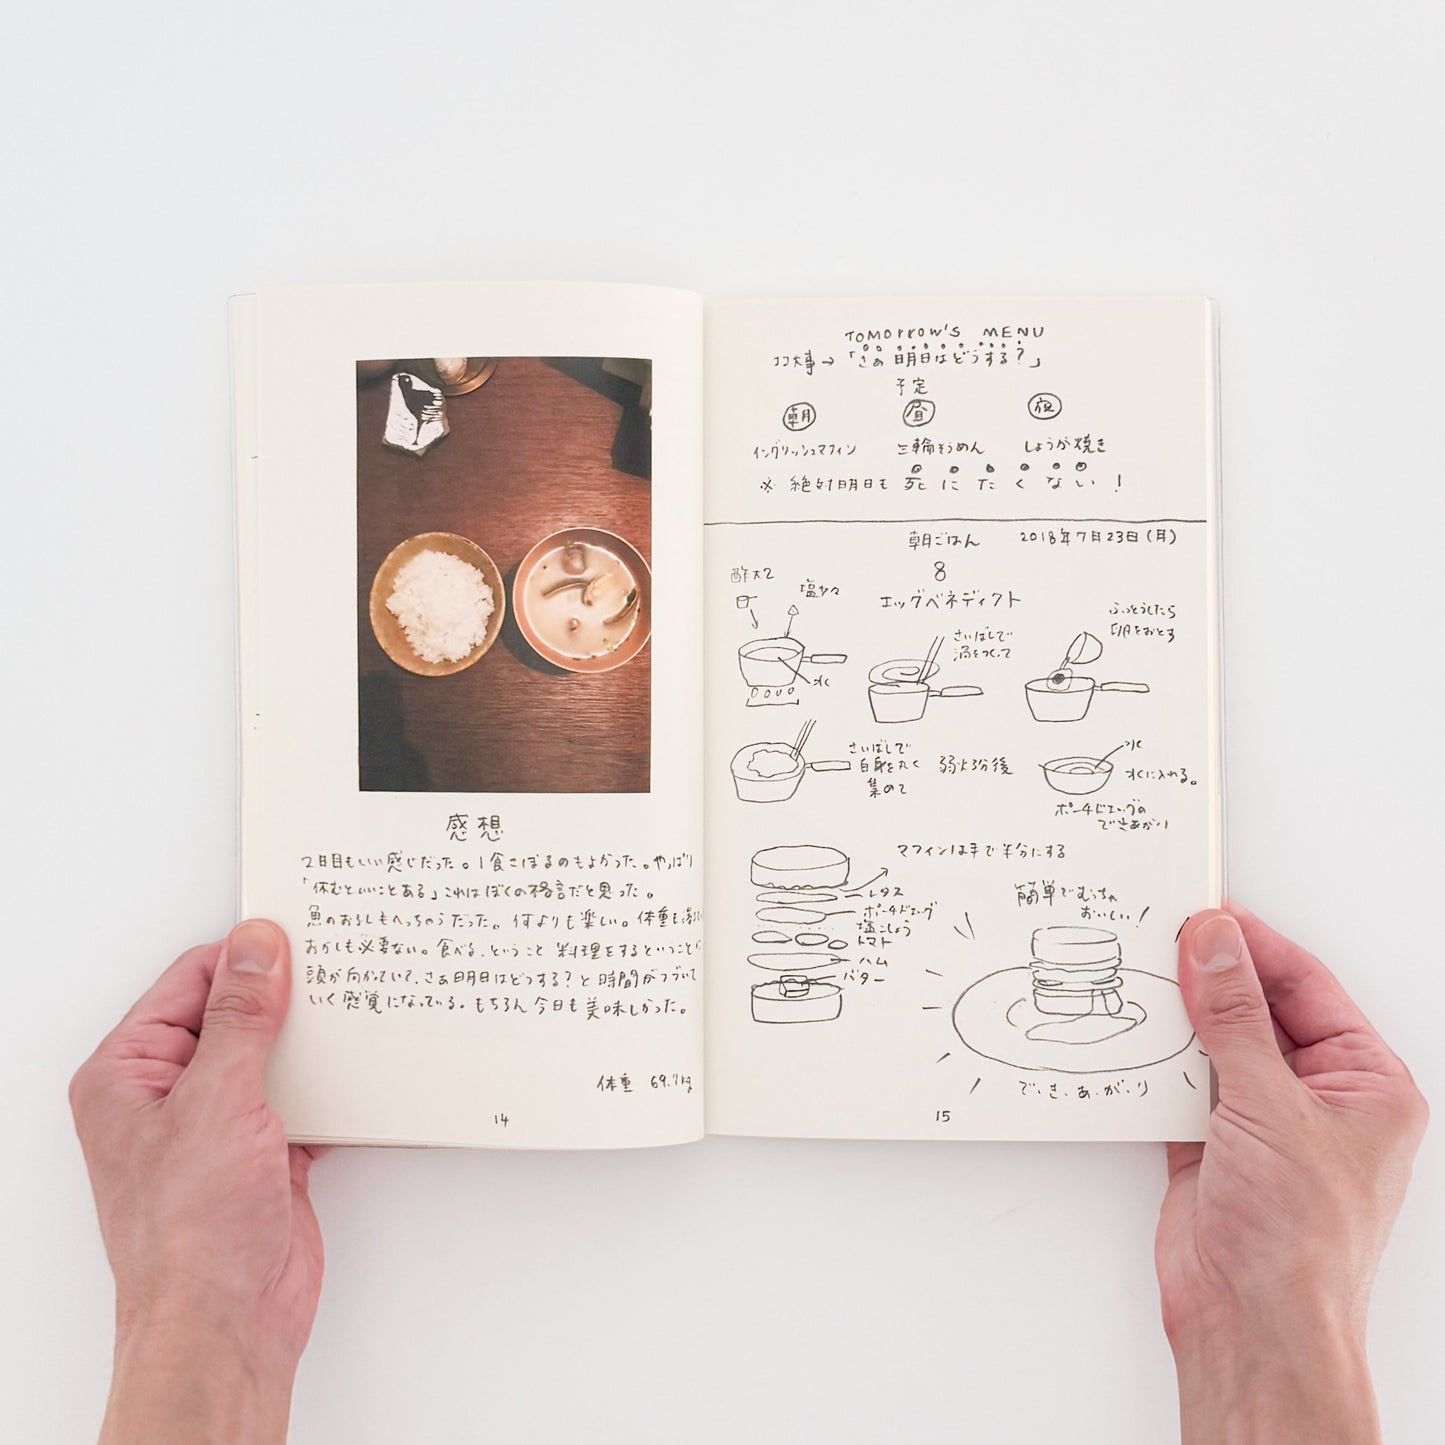 感想
2日目もいい感じだった。1食さぼるのもよかった。やっぱり
「休むといいことある」これはぼくの格言だと思った。
魚のおろしもへっちゃらだった。何よりも楽しい。体重も
おかしも必要ない。食べる、ということ 料理をするということに
頭が向かていて、さぁ明日はどうする?と時間がつづいて
いく感覚になっている。もちろん今日も美味しかった。
体重 69.7kg
14
TOMORROW'S MENU
ココ大事→「さぁ 明日はどうする?」
予定
朝 昼 夜
イングリッシュマフィン 三輪そうめん しょうが焼き
※ 絶対明日も 死にたくない!
朝ごはん 2018年7月23日(月)
8
エッグベネディクト
酢大2
塩少々
水
さいばしで
渦をつくって
ふっとうしたら
卵をおとす
さいばしで
白身を丸く
集めて
弱火3分後
氷
水に入れる。
ポーチドエッグの
できあがり
マフィンは手で半分にする
レタス
ポーチドエッグ
塩こしょう
トマト
ハム
バター
簡単でむっちゃ
おいしい!
で・き・あ・が・り
15